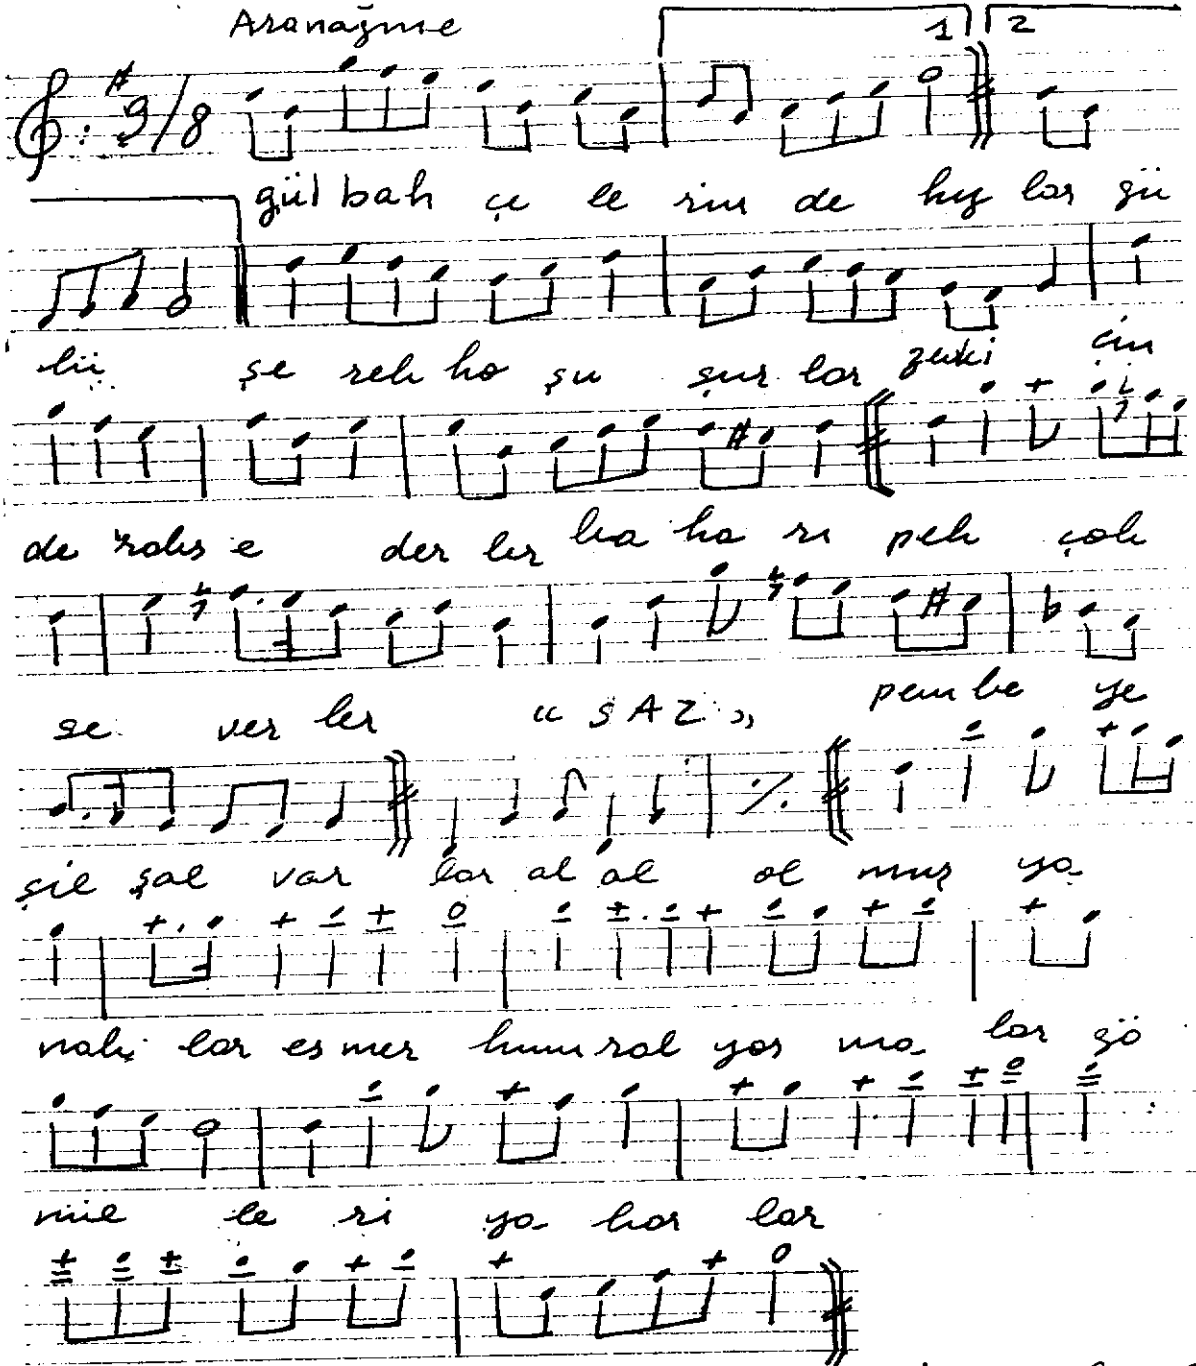 Aranağme
1 2
9/8
gül bah çe le rin de kız lar gü
lü şe rek ko şu şur lar zevki çin
de raks e der ler ba ha rı pek çok
se ver ler "SAZ" pem be ye
şil şal var lar al al ol muş ya
nak lar es mer kum ral yos ma lar gö
nül le ri ya kar lar